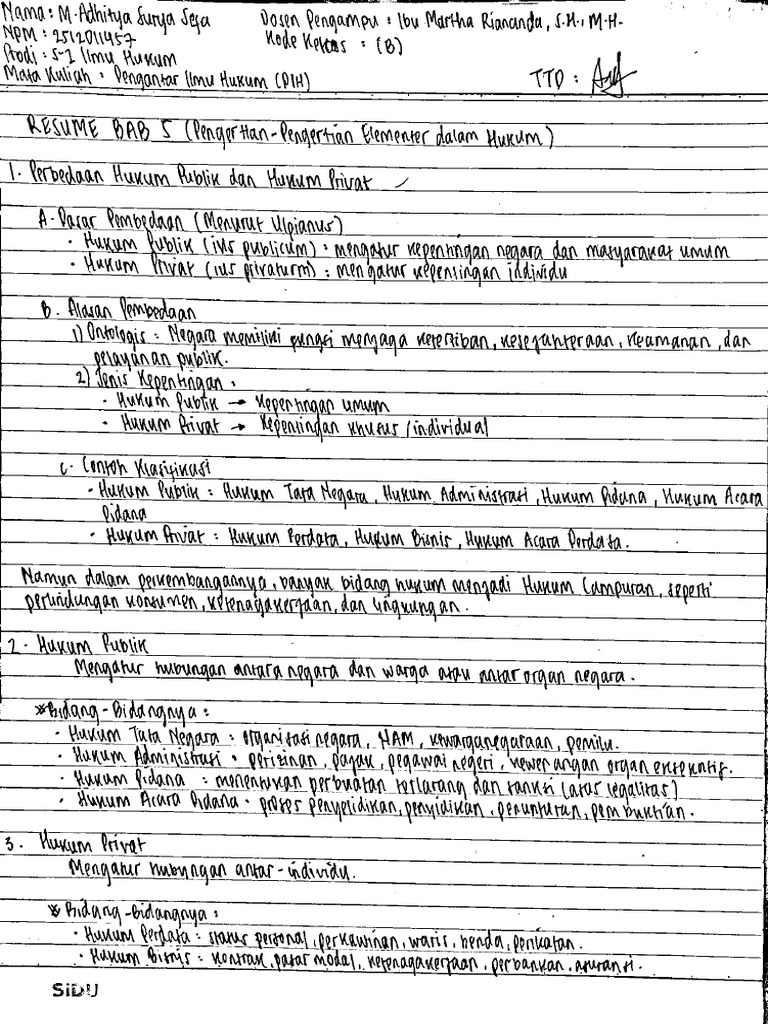 Nama : M. Adhitya Surya Seja
Dosen Pengampu : Ibu Martha Riananda, S.H., M.H.
NPM : 2512011457
Kode Kelas : (B)
Prodi : S-1 Ilmu Hukum
Mata Kuliah : Pengantar Ilmu Hukum (PIH)
TTD :
RESUME BAB 5 (Pengertian-Pengertian Elementer dalam Hukum)
1. Perbedaan Hukum Publik dan Hukum Privat
A. Dasar Pembedaan (Menurut Ulpianus)
• Hukum Publik (ius publicum) : mengatur kepentingan negara dan masyarakat umum
• Hukum Privat (ius privaturm) : mengatur kepentingan iddividu
B. Alasan Pembedaan
1) Ontologis : Negara memiliki fungsi menjaga ketertiban, kesejahteraan, keamanan, dan
pelayanan publik.
2) Jenis Kepentingan :
• Hukum Publik → kepentingan umum
• Hukum Privat → kepentingan khusus / individual
C. Contoh Klasifikasi
• Hukum Publik : Hukum Tata Negara, Hukum Administrasi, Hukum Pidana, Hukum Acara
Pidana
• Hukum Privat : Hukum Perdata, Hukum Bisnis, Hukum Acara Perdata.
Namun dalam perkembangannya, banyak bidang hukum menjadi Hukum Campuran, seperti
perlindungan konsumen, ketenagakerjaan, dan lingkungan.
2. Hukum Publik
Mengatur hubungan antara negara dan warga atau antar organ negara.
* Bidang-Bidangnya :
• Hukum Tata Negara : organisasi negara, HAM, kewarganegaraan, pemilu.
• Hukum Administrasi : perizinan, pajak, pegawai negeri, kewenangan organ eksekutif.
• Hukum Pidana : menentukan perbuatan terlarang dan sanksi (asas legalitas)
• Hukum Acara Pidana : proses penyelidikan, penyidikan, penuntutan, pembuktian.
3. Hukum Privat
Mengatur hubungan antar-individu.
* Bidang-bidangnya :
• Hukum Perdata : status personal, perkawinan, waris, benda, perikatan.
• Hukum Bisnis : kontrak, pasar modal, ketenagakerjaan, perbankan, asuransi.
SiDU